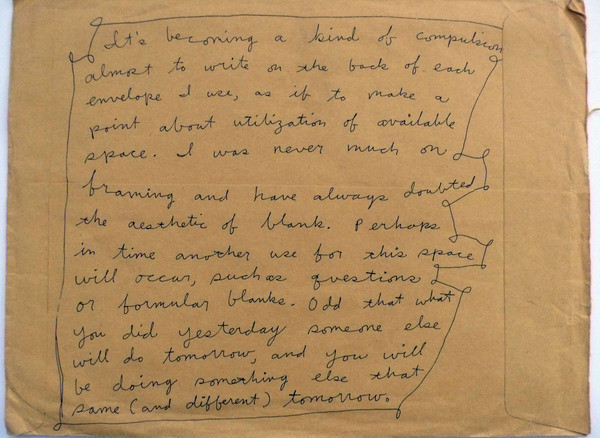 It's becoming a kind of compulsion
almost to write on the back of each
envelope I use, as if to make a
point about utilization of available
space. I was never much on
framing and have always doubted
the aesthetic of blank. Perhaps
in time another use for this space
will occur, such as questions
or formular blanks. Odd that what
you did yesterday someone else
will do tomorrow, and you will
be doing something else that
same (and different) tomorrow.